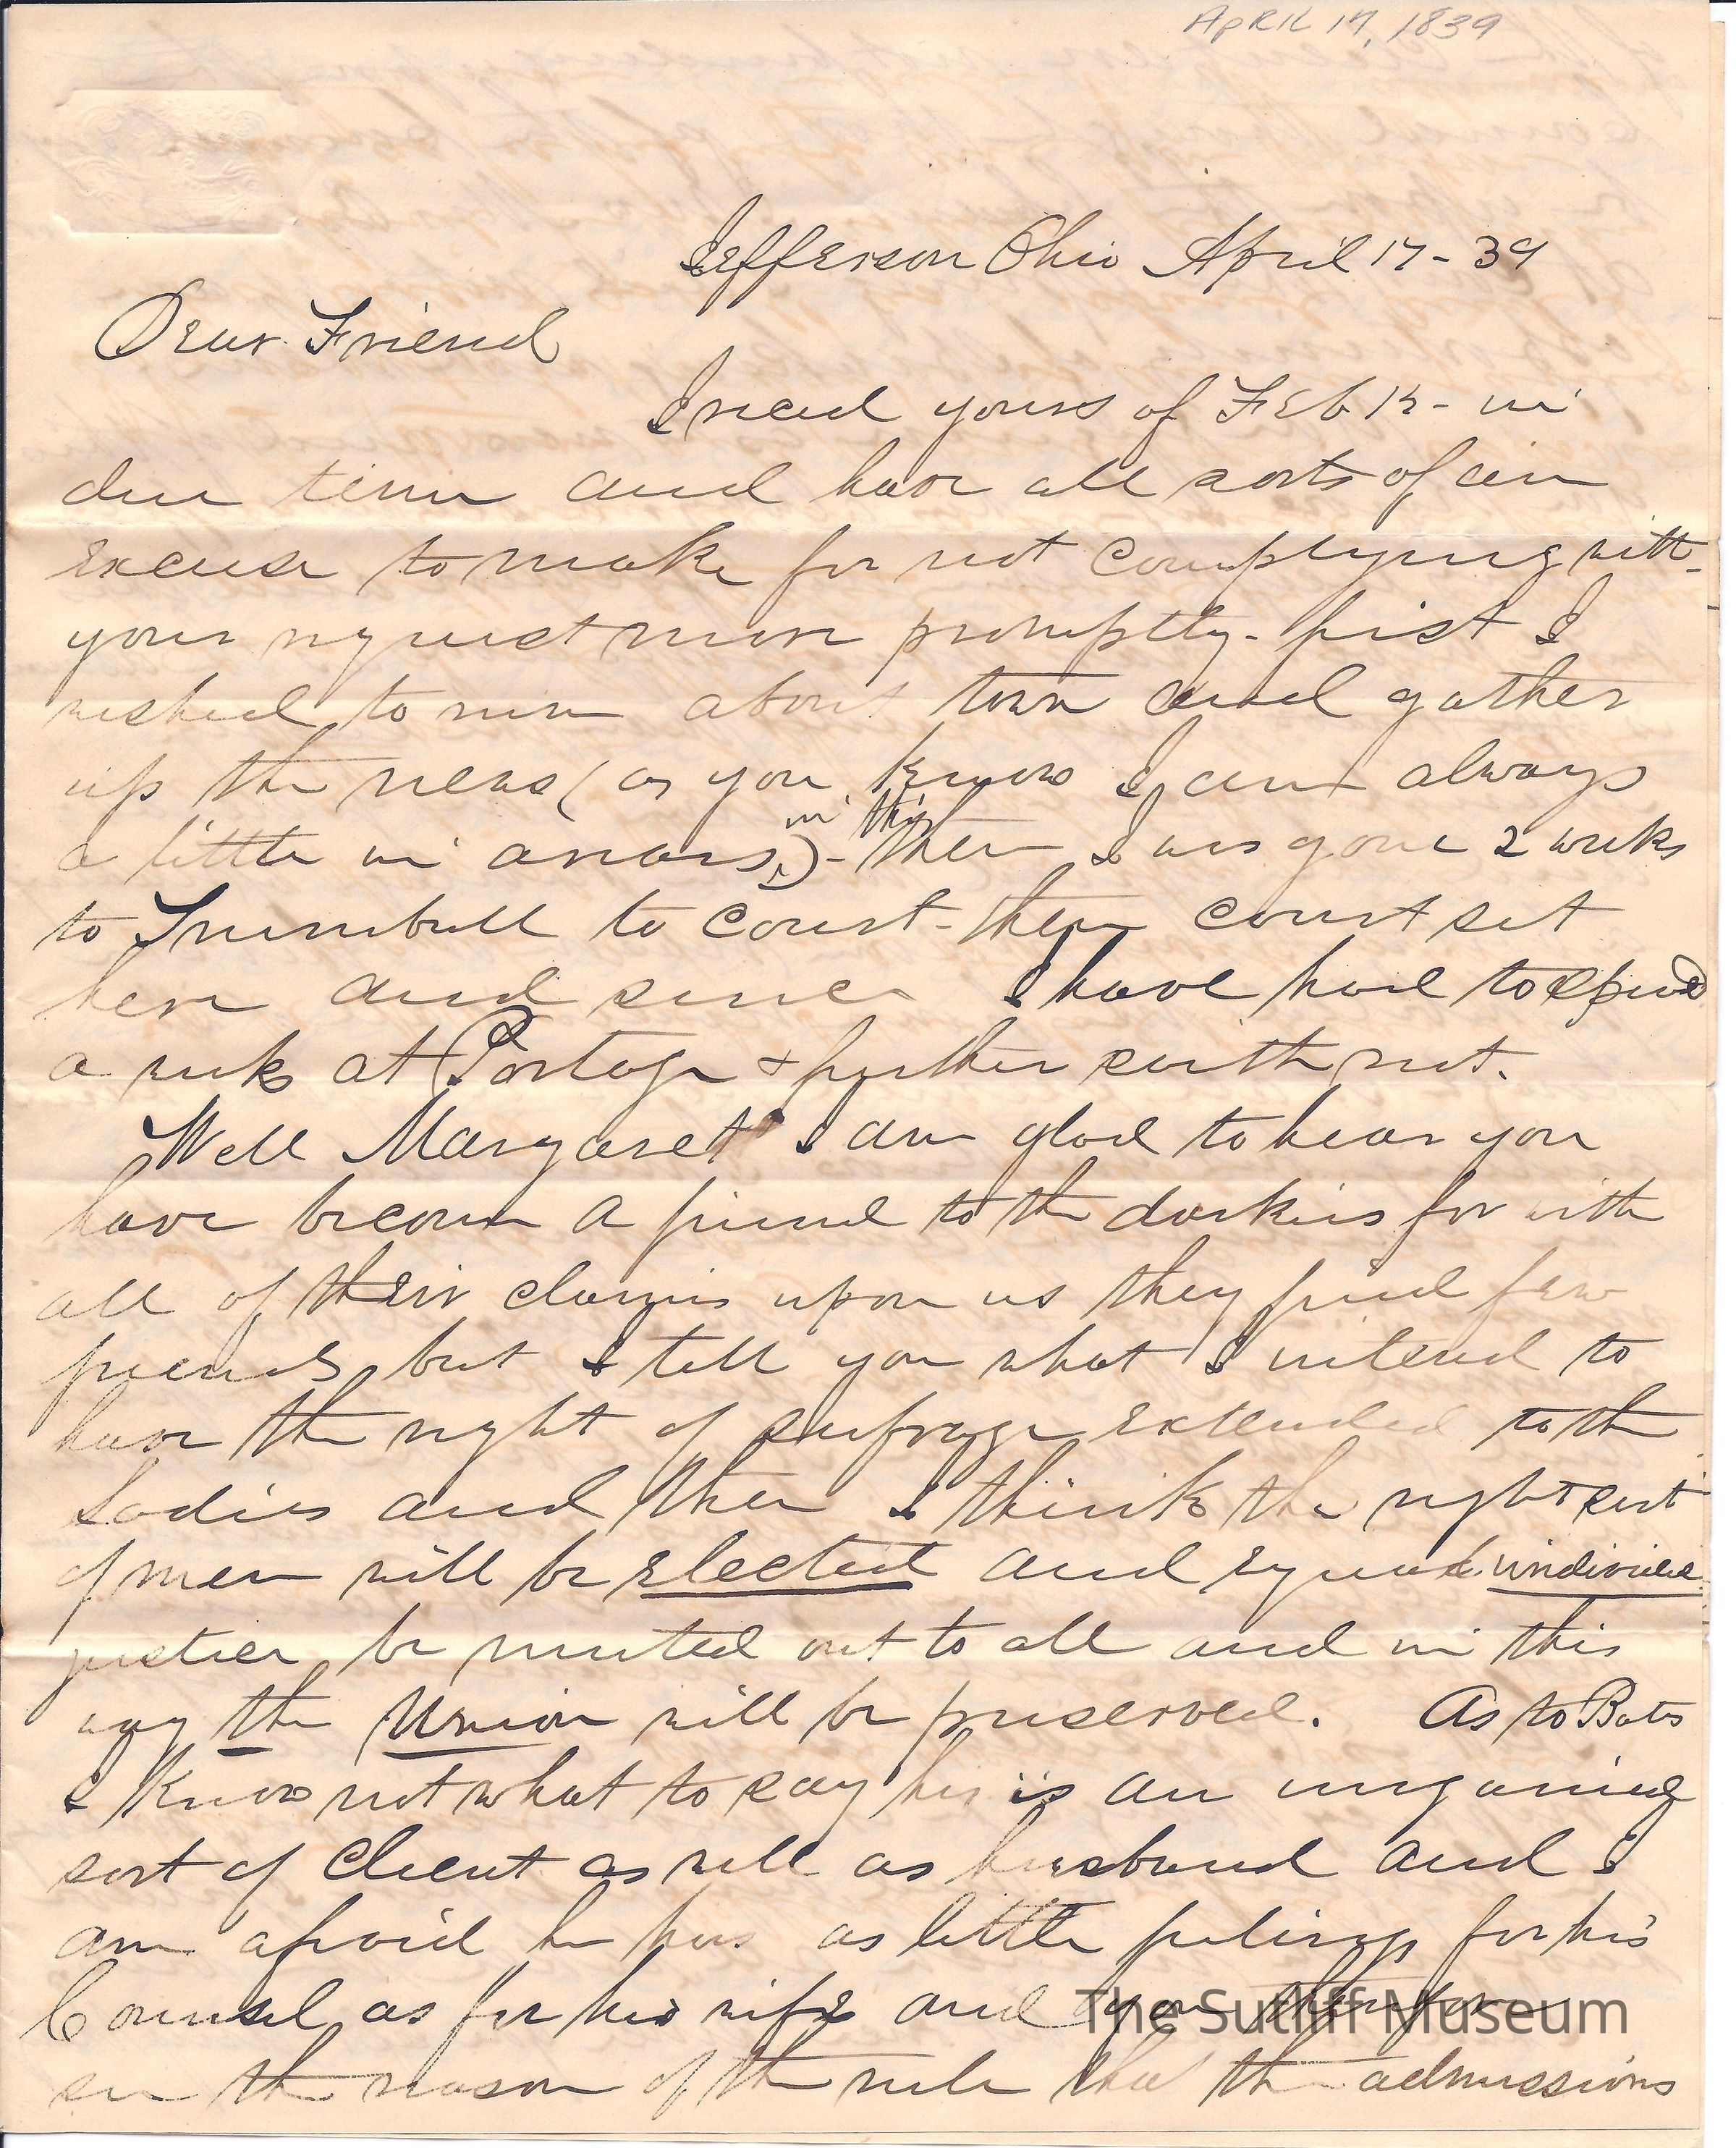 April 17, 1839
Jefferson Ohio April 17 - 39
Dear Friend
I recd yours of Feb 12 - in
due time and have all sorts of an
excuse to make for not complying with
your request more promptly - first I
wished to run about town and gather
up the news (as you know I am always
a little in arrears, in this) - then I was gone 2 weeks
to Trumbull to court - then court set
here and since I have had to spend
a week at Portage & further saith not.
Well Margaret I am glad to hear you
have become a friend to the darkies for with
all of their claims upon us they find few
friends, but I tell you what I intend to
have the right of sufrage extended to the
Ladies and then I think the right sort
of men will be elected and equal undivided
justice be meted out to all and in this
way the Union will be preserved. As to Bates
I know not what to say his is an
sort of Client as well as husband and I
am afraid he has as little feelings for his
Counsel as for his wife and you therefore
see the reason of the rule that the admissions
The Sutliff Museum